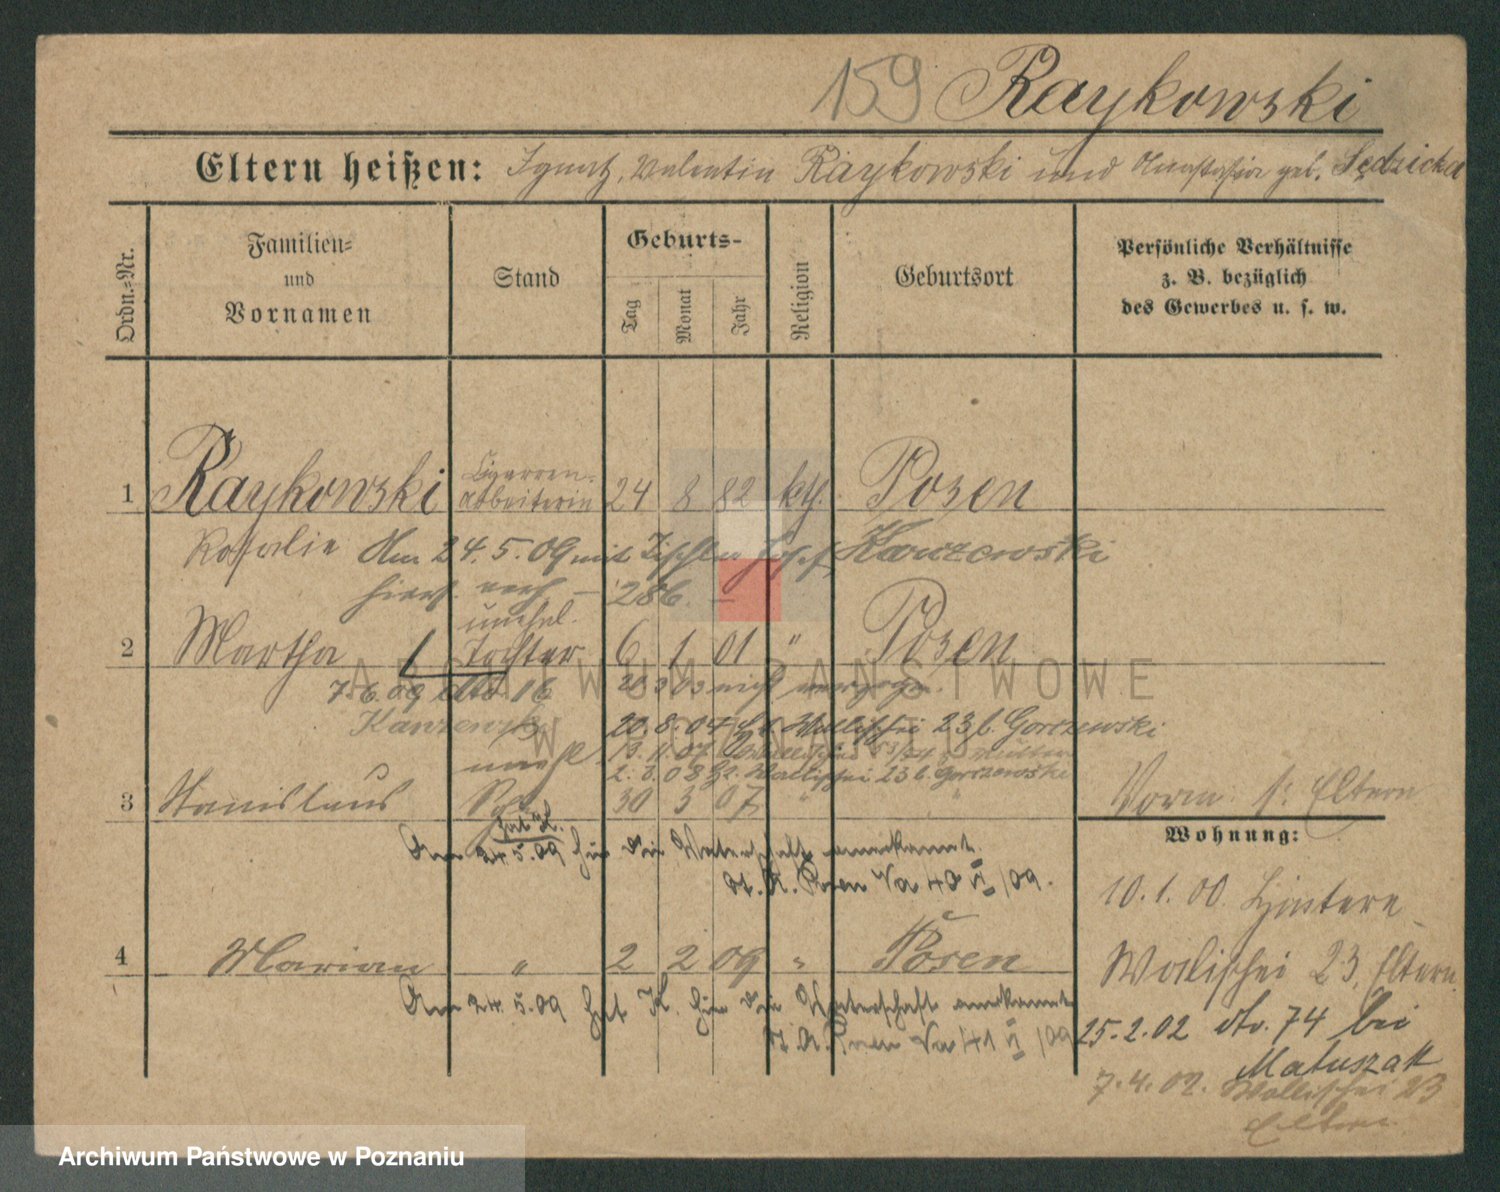 159 Raykowski
Eltern heißen: Ignatz, Valentin Raykowski und Anastasia geb. Sędzicka
Ordn.-Nr.
Familien-
und
Vornamen
Stand
Geburts-
Tag
Monat
Jahr
Religion
Geburtsort
Persönliche Verhältnisse
z. B. bezüglich
des Gewerbes u. s. w.
1 Raykowski Cigarren-
arbeiterin 24 8 82 kth. Posen
Rosalie Am 24.5.09 mit Tischler Josef Kanzewski
hiers. verh - 286. -
2 Martha unehel.
Tochter 6 1 01 " Posen
7.6.09 16
Kanzewski
20.3.03 nicht
20.8.04 Wallischei 23 b. Gorczewski
13.11.07 Wallischei 53/54
2.3.08 Wallischei 23 b. Gorczewski
3 Stanislaus unehl.
Sohn 30 3 07 " "
Vorm. s. Eltern
hat K.
Am 24.5.09 für die Vaterschaft anerkannt.
St. A. Posen Va 40 VI/09.
Wohnung:
10.1.00. Hintere
Wallischei 23, Eltern.
4 Marian " 2 2 09 " Posen
Am 24.5.09 hat K. für die Vaterschaft anerkannt
St. A. Posen Va 41 VI/09
25.2.02 dto. 74 bei
Matuszak
7.4.02. Wallischei 23
Eltern
ARCHIWUM PAŃSTWOWE
W POZNANIU
Archiwum Państwowe w Poznaniu